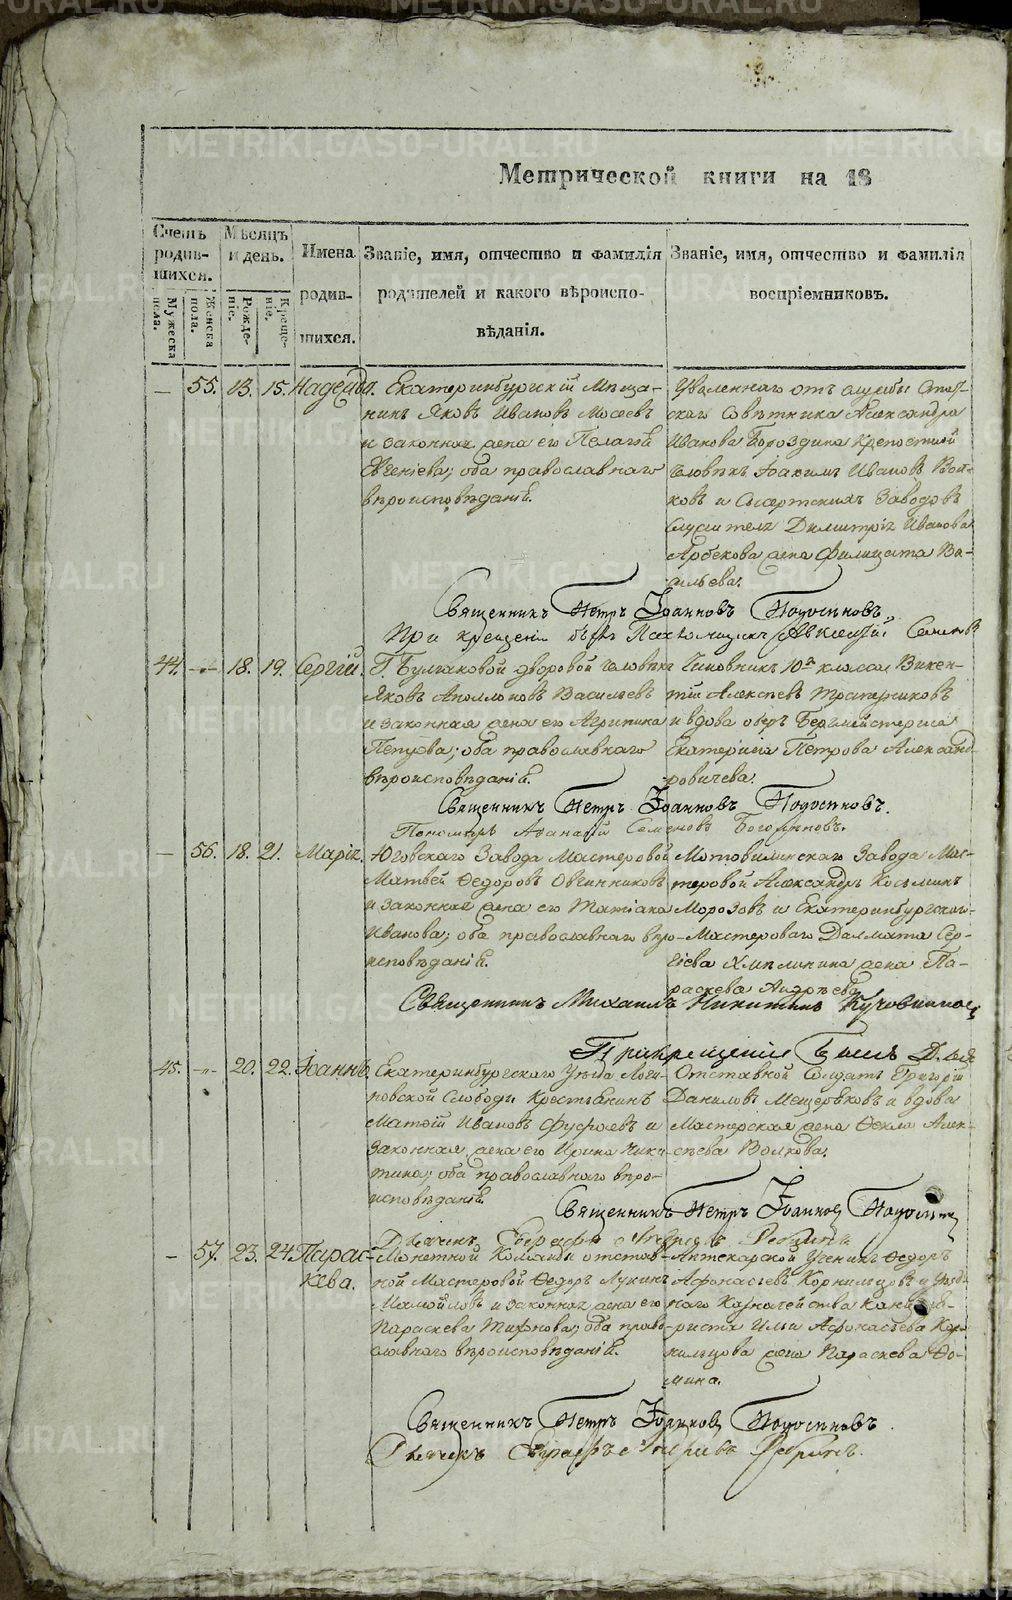 Метрической книги на 18
Счетъ родив-шихся.
Мужеска пола.
Женска пола.
Мѣсяцъ и день.
Рожде-ніе.
Креще-ніе.
Имена родив-шихся.
Званіе, имя, отчество и фамилія родителей и какого вѣроиспо-вѣданія.
Званіе, имя, отчество и фамилія воспріемниковъ.
— 55. 13. 15. Надежда.
Екатеринбургскій Мѣща-
нинъ Яковъ Ивановъ Мосеевъ
и законная жена его Пелагія
Евгеніева; оба православнаго
вѣроисповѣданія.
Уволеннаго отъ службы Стат-
скаго Совѣтника Александра
Иванова Бороздина крепостной
человѣкъ Іоакимъ Ивановъ Вол-
ковъ и Сысертскихъ Заводовъ
служителя Димитрія Иванова
Арбекова жена Филицата Ва-
сильева.
Священникъ Петръ Іоанновъ Подосеновъ
При крещеніи былъ
44. -"- 18. 19. Сергій.
Г. Булгаковой дворовой человѣкъ
Яковъ Аполлоновъ Васильевъ
и законная жена его Агрипина
оба православнаго
вѣроисповѣданія.
Чиновникъ 10го класса Викен-
тій Алексѣевъ Трапезниковъ
и вдова оберъ Бергмейстерша
Екатерина Петрова Александ-
ровичева.
Священникъ Петръ Іоанновъ Подосеновъ.
Пономарь Афанасій Семеновъ
— 56. 18. 21. Марія.
Юговскаго Завода Мастеровой
Матвей Ѳедоровъ Овчинниковъ
и законная жена его Татіана
Иванова; оба православнаго вѣро-
исповѣданія.
Мотовилинскаго Завода Мас-
теровой Александръ Козьминъ
Морозовъ и Екатеринбургскаго
Мастероваго Далмата Сер-
гіева Хмѣлинина жена Па-
раскева Андрѣева
Священникъ Михаилъ Никитинъ
При крещеніи былъ
45. -"- 20. 22. Іоаннъ.
Екатеринбургскаго Уѣзда Логи-
новской Слободы Крестьянинъ
Матѳій Ивановъ и
законная жена его Ирина Ники-
тина; оба православнаго вѣро-
исповѣданія.
Отставной Солдатъ Григорій
Даниловъ Мещеряковъ и вдова
Мастерская жена Ѳекла Алек-
сѣева Волкова.
Священникъ Петръ Іоанновъ
Дьячекъ
— 57. 23. 24. Парас-
кева.
Монетной Команды отстав-
ной Мастеровой Ѳедоръ Лукинъ
и законная жена его
Параскева оба право-
славнаго вѣроисповѣданія.
Аптекарской Ученикъ Ѳедоръ
Афонасьевъ Корнильцовъ и Уѣзд-
наго Казначейства Канцеля-
риста Ильи Афонасьева Кор-
нильцова жена Параскева Ѳо-
мина.
Священникъ Петръ Іоанновъ Подосеновъ
Дьячекъ
METRIKI.GASO-URAL.RU